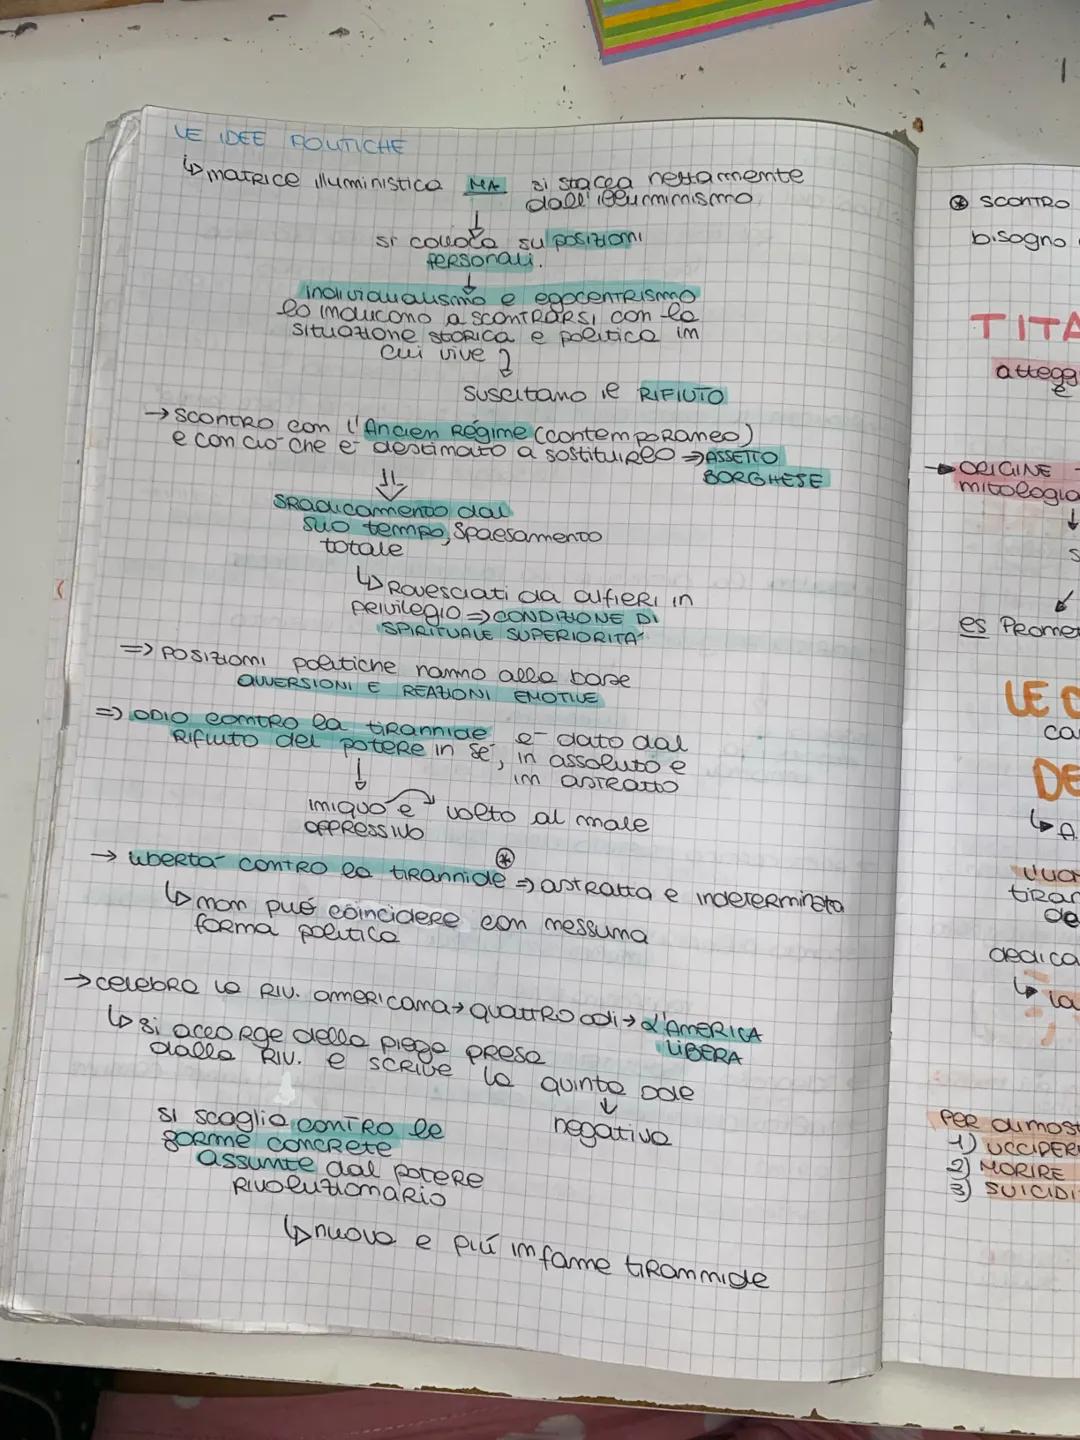 LE IDEE POLITICHE
↳ matrice illuministica MA si stacca nettamente
dall'illuminismo
↓
si colloca su posizioni
personali.
↓
individualismo e egocentrismo
lo inducono a scontrarsi con la
situazione storica e politica in
cui vive
suscitano il RIFIUTO
→ scontro con l'Ancien Régime (contemporaneo)
e con ciò che è destinato a sostituirlo ⇒ ASSETTO
BORGHESE
⇓
sradicamento dal
suo tempo, spaesamento
totale
↳ rovesciati da alfieri in
privilegio ⇒ CONDIZIONE DI
SPIRITUALE SUPERIORITÀ
⇒ posizioni politiche hanno alla base
AVVERSIONI E REAZIONI EMOTIVE
⇒ odio contro la tirannide è dato dal
rifiuto del potere in sé, in assoluto e
in astratto
↓
iniquo e volto al male
oppressivo
→ libertà contro la tirannide ⊛ ⇒ astratta e indeterminata
↳ non può coincidere con nessuna
forma politica
→ celebra la riv. americana → quattro odi → L'AMERICA
LIBERA
↳ si accorge della piega presa
dalla riv. e scrive la quinta ode
↓
negativa
si scaglia contro le
forme concrete
assunte dal potere
rivoluzionario
↳ nuova e più infame tirannide
⊛ SCONTRO
bisogno
TITA
attegg
è
→ ORIGINE
mitologia
↓
s
es Promet
LE
ca
DE
↳ A
tiran
de
dedica
↳ la
PER dimost
1) UCCIDER
2) MORIRE
3) SUICIDI